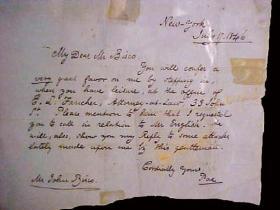 New-York
July 17. 1846
My Dear Mr. Bisco,
You will confer a
very great favor on me by stepping in,
when you have leisure, at the office of
E. L. Fancher, Attorney-at-Law, 33 John
St. Please mention to him that I requested
you to call in relation to Mr. English. He
will, also, show you my Reply to some attacks
lately made upon me by this gentleman.
Cordially Yours
Poe.
Mr John Bisco.